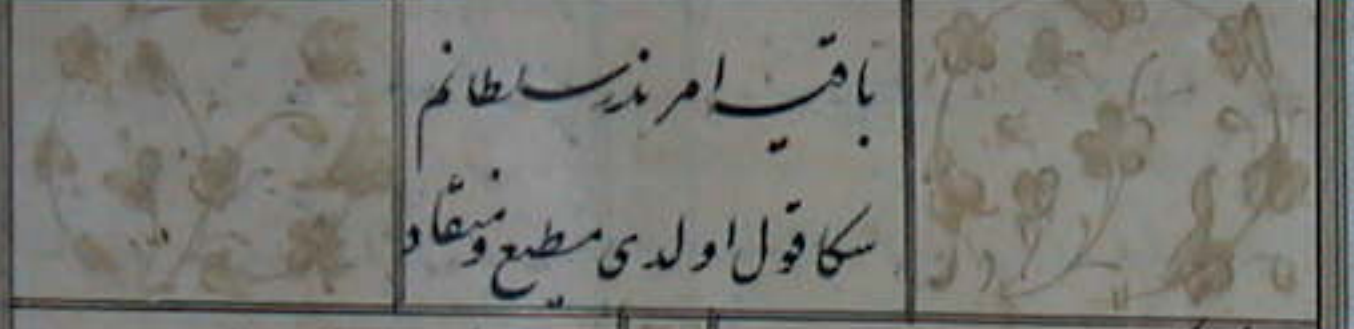 باقیه امر ندر سلطانم
سکا قول اولدی مطیع و منقاد